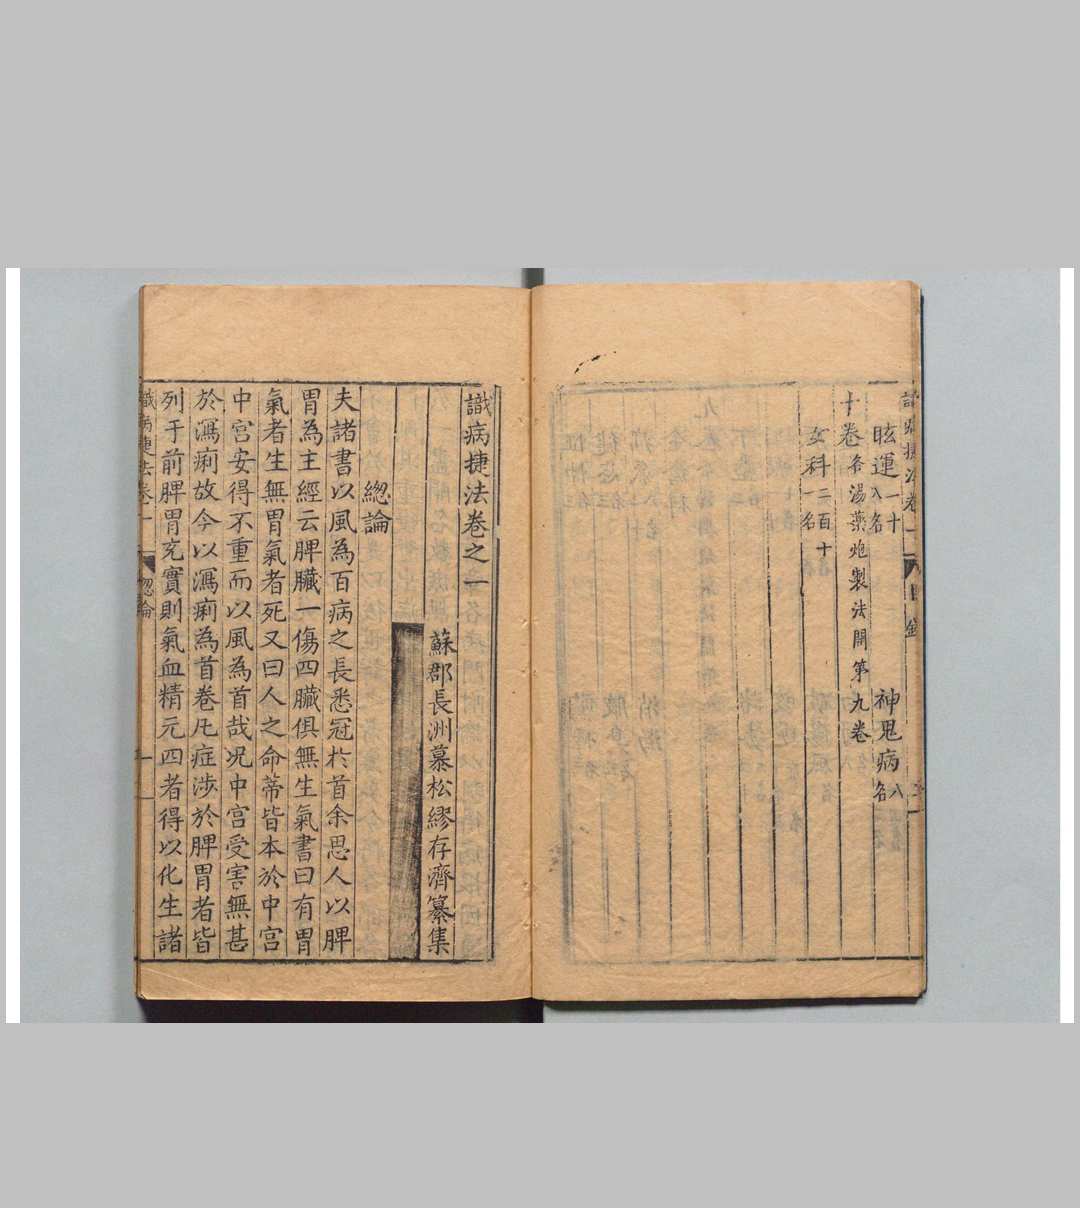 眩運一十八名 神鬼病八名
十卷各湯藥炮製法開第九卷
女科二百十一名
識病捷法卷之一
蘇郡長洲慕松繆存濟纂集
緫論
夫諸書以風為百病之長悉冠於首余思人以脾
胃為主經云脾臟一傷四臟俱無生氣書曰有胃
氣者生無胃氣者死又曰人之命蒂皆本於中宮
中宮安得不重而以風為首哉况中宮受害無甚
於瀉痢故今以瀉痢為首卷凡症涉於脾胃者皆
列于前脾胃充實則氣血精元四者得以化生諸
識病捷法卷一 緫論 一